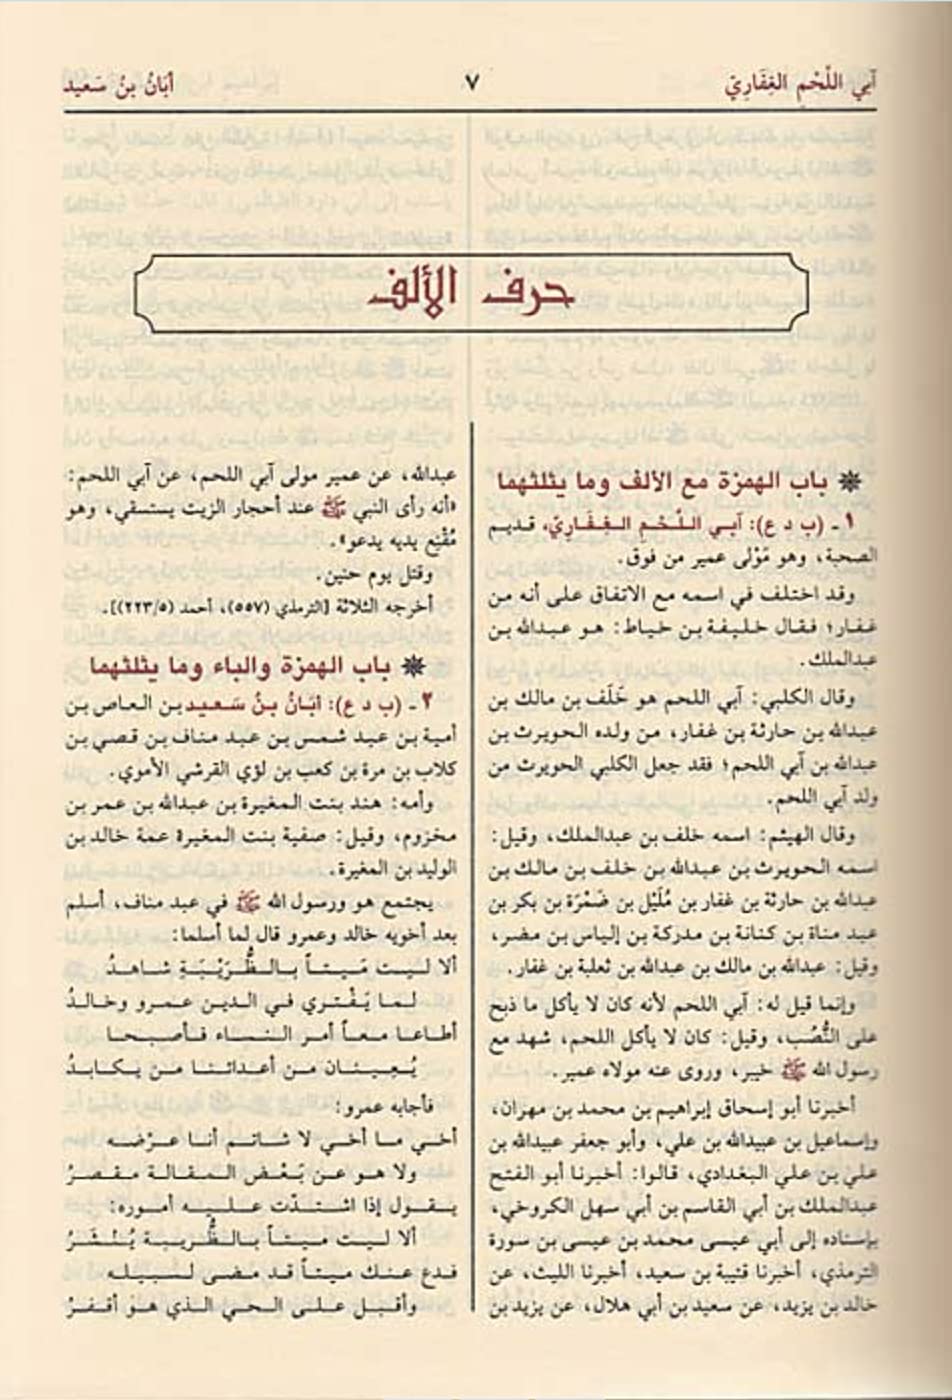 آبي اللَّحْمِ الغِفَارِيّ
٧
أبَانُ بنُ سَعيد
حرف الألف
❋ باب الهمزة مع الألف وما يثلثهما
١ ـ (ب د ع): آبـي اللَّـحْـم الـغـفَـاريّ، قديـم
الصحبة، وهو مَوْلى عمير من فوق.
وقد اختلف في اسمه مع الاتفاق على أنه من
غفار؛ فقال خليفة بن خياط: هو عبدالله بن
عبدالملك.
وقال الكلبي: آبي اللحم هو خَلَف بن مالك بن
عبدالله بن حارثة بن غفار، من ولده الحويرث بن
عبدالله بن آبي اللحم؛ فقد جعل الكلبي الحويرث من
ولد آبي اللحم.
وقال الهيثم: اسمه خلف بن عبدالملك، وقيل:
اسمه الحويرث بن عبدالله بن خلف بن مالك بن
عبدالله بن حارثة بن غفار بن مُلَيْل بن ضَمْرَة بن بكر بن
عبد مناة بن كنانة بن مدركة بن إلياس بن مضر،
وقيل: عبدالله بن مالك بن عبدالله بن ثعلبة بن غفار.
وإنما قيل له: آبي اللحم لأنه كان لا يأكل ما ذبح
على النُّصُب، وقيل: كان لا يأكل اللحم، شهد مع
رسول الله ﷺ خيبر، وروى عنه مولاه عمير.
أخبرنا أبو إسحاق إبراهيم بن محمد بن مهران،
وإسماعيل بن عبيدالله بن علي، وأبو جعفر عبيدالله بن
علي بن علي البغدادي، قالوا: أخبرنا أبو الفتح
عبدالملك بن أبي القاسم بن أبي سهل الكروخي،
بإسناده إلى أبي عيسى محمد بن عيسى بن سورة
الترمذي، أخبرنا قتيبة بن سعيد، أخبرنا الليث، عن
خالد بن يزيد، عن سعيد بن أبي هلال، عن يزيد بن
عبدالله، عن عمير مولى آبي اللحم، عن آبي اللحم:
«أنه رأى النبي ﷺ عند أحجار الزيت يستسقي، وهو
مُقْنِع يديه يدعو».
وقتل يوم حنين.
أخرجه الثلاثة [الترمذي (٥٥٧)، أحمد (٢٢٣/٥)].
❋ باب الهمزة والباء وما يثلثهما
٢ ـ (ب د ع): أبَـانُ بـنُ سَـعـيـد بن العاص بن
أمية بن عبد شمس بن عبد مناف بن قصي بن
كلاب بن مرة بن كعب بن لؤي القرشي الأموي.
وأمه: هند بنت المغيرة بن عبدالله بن عمر بن
مخزوم، وقيل: صفية بنت المغيرة عمة خالد بن
الوليد بن المغيرة.
يجتمع هو ورسول الله ﷺ في عبد مناف، أسلم
بعد أخويه خالد وعمرو قال لما أسلما:
ألا ليت مَيتـاً بالظُّرَيْبَةِ شاهـدُ
لـمـا يَـفْـتـري في الـديـن عـمـرو وخـالـدُ
أطاعا معـاً أمـر النـساء فـأصبـحـا
يُـعِـيـنـان مـن أعـدائـنـا مـن يـكـابـدُ
فأجابه عمرو:
أخـي مـا أخـي لا شـاتـم أنـا عـرْضـه
ولا هـو عـن بَـعْـض الـمـقـالـة مـقـصـرُ
يـقـول إذا اشـتـدّت عـلـيـه أمـوره:
ألا لـيـت مـيـتـاً بـالـظُّـريـبـة يُـنْـشَـرُ
فـدع عـنـك مـيـتـاً قـد مـضـى لـسـبـيـلـه
وأقـبـل عـلـى الـحـي الـذي هـو أقـفـرُ